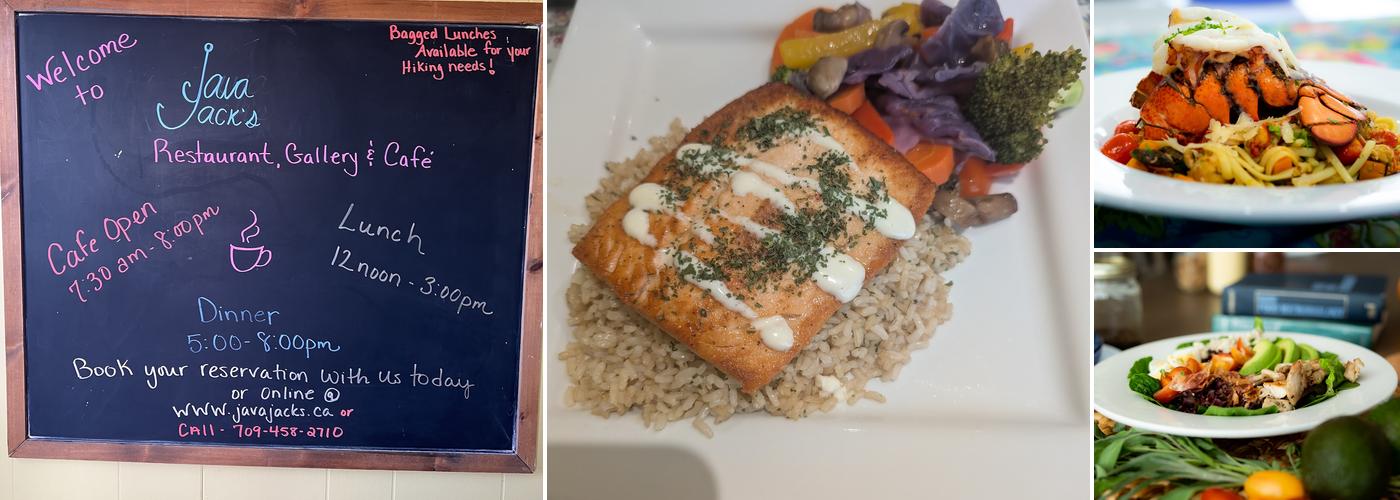 Welcome
to
Java
Jack's
Restaurant, Gallery & Café
Bagged Lunches
Available for your
Hiking needs!
Cafe Open
7:30 am - 8:00pm
Lunch
12 noon - 3:00pm
Dinner
5:00 - 8:00pm
Book your reservation with us today
or Online @
www.javajacks.ca or
CALL - 709-458-2710